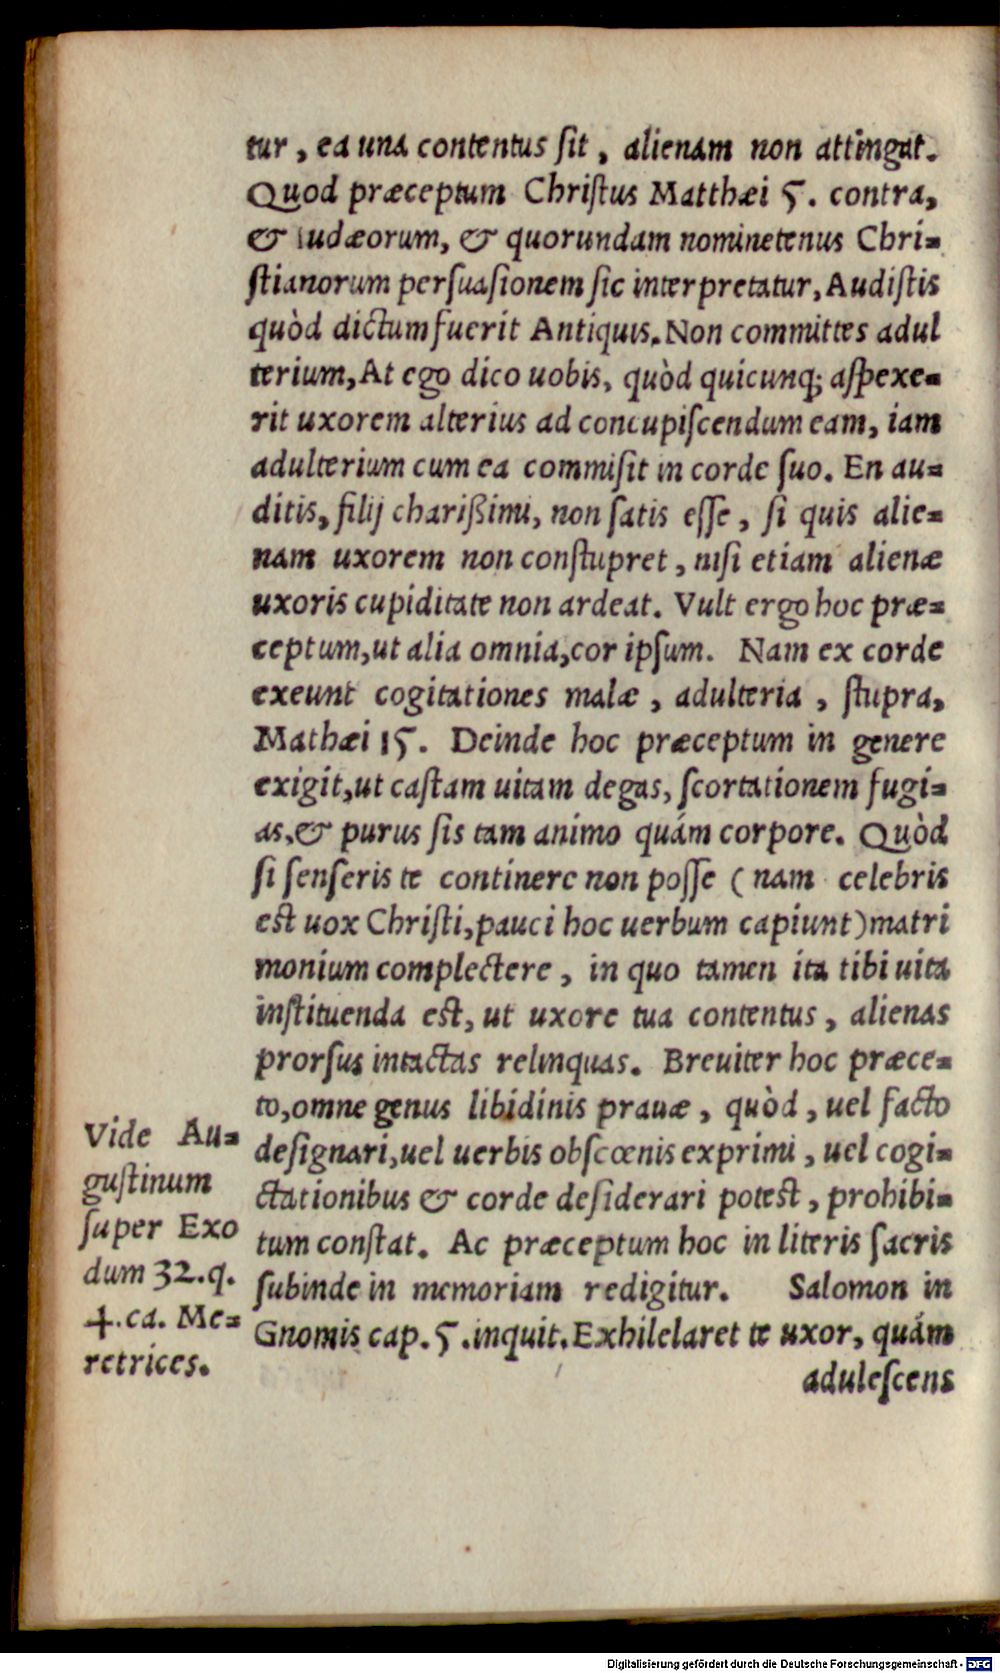 tur, ea una contentus ſit, alienam non attingat.
Quod præceptum Chriſtus Matthæi 5. contra,
& Iudæorum, & quorundam nominetenus Chri=
ſtianorum perſuaſionem ſic interpretatur, Audiſtis
quòd dictum fuerit Antiquis. Non committes adul
terium, At ego dico uobis, quòd quicunq; aſpexe=
rit uxorem alterius ad concupiſcendum eam, iam
adulterium cum ea commiſit in corde ſuo. En au=
ditis, filij charißimi, non ſatis eſſe, ſi quis alie=
nam uxorem non conſtupret, niſi etiam alienæ
uxoris cupiditate non ardeat. Vult ergo hoc præ=
ceptum, ut alia omnia, cor ipſum. Nam ex corde
exeunt cogitationes malæ, adulteria, ſtupra,
Mathæi 15. Deinde hoc præceptum in genere
exigit, ut caſtam uitam degas, ſcortationem fugi=
as, & purus ſis tam animo quám corpore. Quòd
ſi ſenſeris te continere non poſſe (nam celebris
est uox Chriſti, pauci hoc uerbum capiunt) matri
monium complectere, in quo tamen ita tibi uita
inſtituenda eſt, ut uxore tua contentus, alienas
prorſus intactas relinquas. Breuiter hoc præce=
to, omne genus libidinis prauæ, quòd, uel facto
deſignari, uel uerbis obſcœnis exprimi, uel cogi=
ctationibus & corde deſiderari poteſt, prohibi=
tum conſtat. Ac præceptum hoc in literis ſacris
ſubinde in memoriam redigitur. Salomon in
Gnomis cap. 5. inquit. Exhilelaret te uxor, quám
aduleſcens
Vide Au=
guſtinum
ſuper Exo
dum 32. q.
4. ca. Me=
retrices.
Digitalisierung gefördert durch die Deutsche Forschungsgemeinschaft - DFG